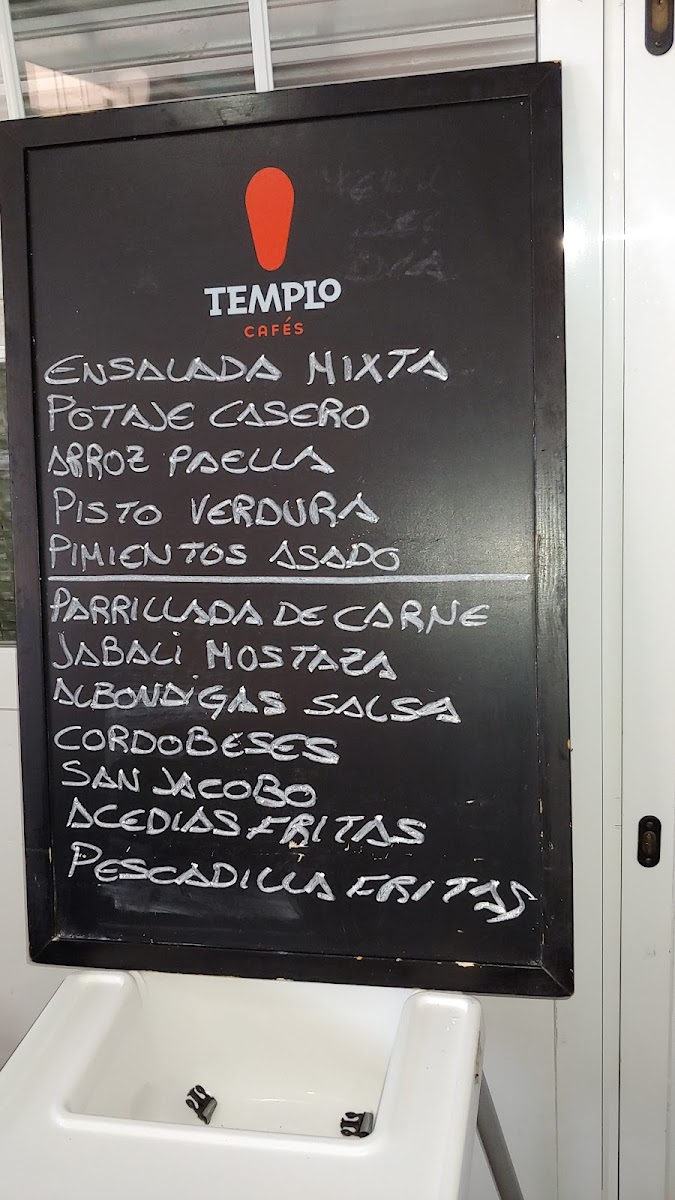 TEMPLO
CAFÉS
ENSALADA MIXTA
POTAJE CASERO
ARROZ PAELLA
PISTO VERDURA
PIMIENTOS ASADO
PARRILLADA DE CARNE
JABALI MOSTAZA
ALBONDIGAS SALSA
CORDOBESES
SAN JACOBO
ACEDIAS FRITAS
PESCADILLA FRITAS